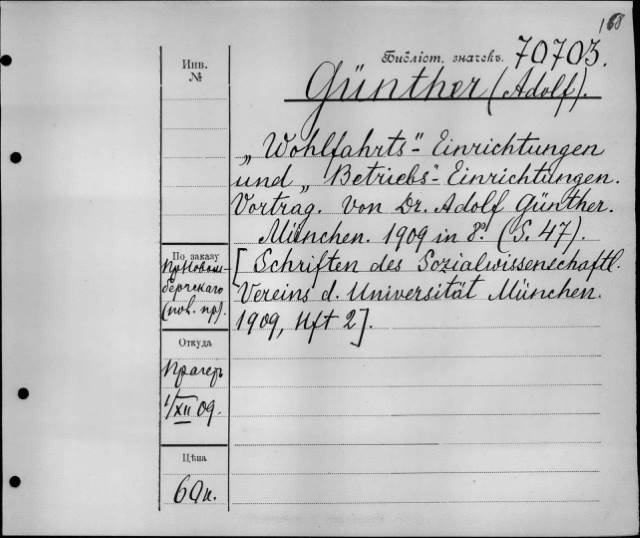 168
Библіот. значекъ. 70703.
Günther (Adolf).
Инв.
№
„Wohlfahrts“- Einrichtungen
und „Betriebs“- Einrichtungen.
Vortrag. von Dr. Adolf Günther.
München. 1909 in 8º. (S. 47).
[Schriften des Sozialwissenschaftl.
Vereins d. Universität München.
1909, Hft 2].
По заказу
(пов. пр).
Откуда
Прагеръ
1/XII 09.
Цѣна
60 п.